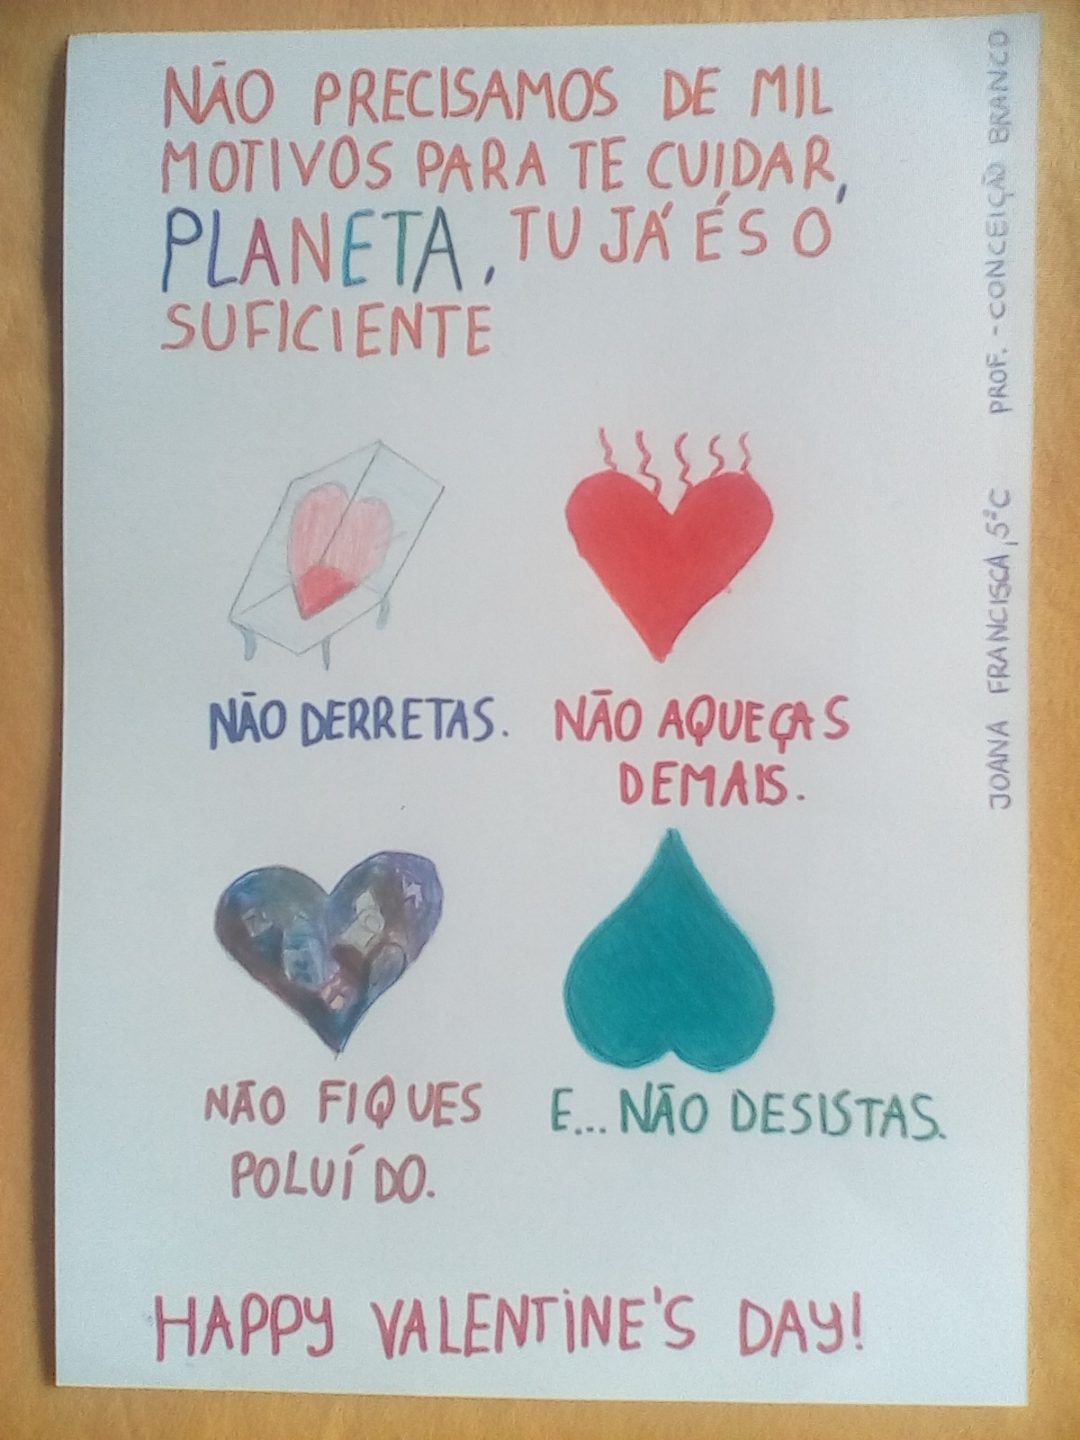 NÃO PRECISAMOS DE MIL
MOTIVOS PARA TE CUIDAR,
PLANETA, TU JÁ ÉS O
SUFICIENTE
NÃO DERRETAS.
NÃO AQUEÇAS
DEMAIS.
NÃO FIQUES
POLUÍDO.
E... NÃO DESISTAS.
HAPPY VALENTINE'S DAY!
JOANA FRANCISCA, 5ºC PROF. - CONCEIÇÃO BRANCO